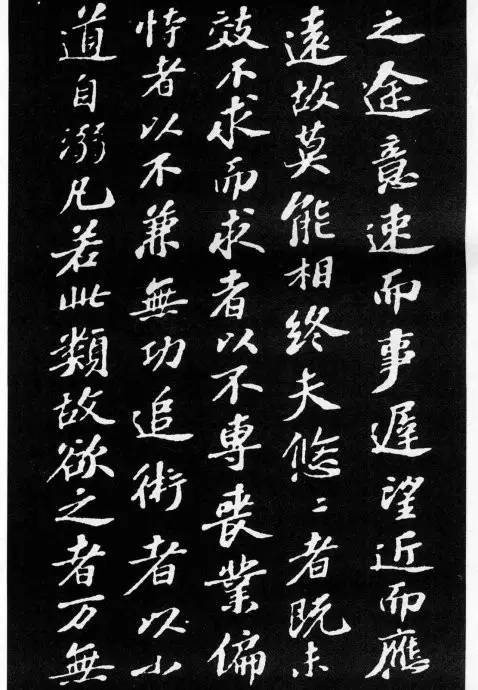 之途意速而事遅望近而應
遠故莫能相終夫悠〻者既未
效不求而求者以不專喪業偏
恃者以不兼無功追術者以小
道自溺凡若此類故欲之者万無